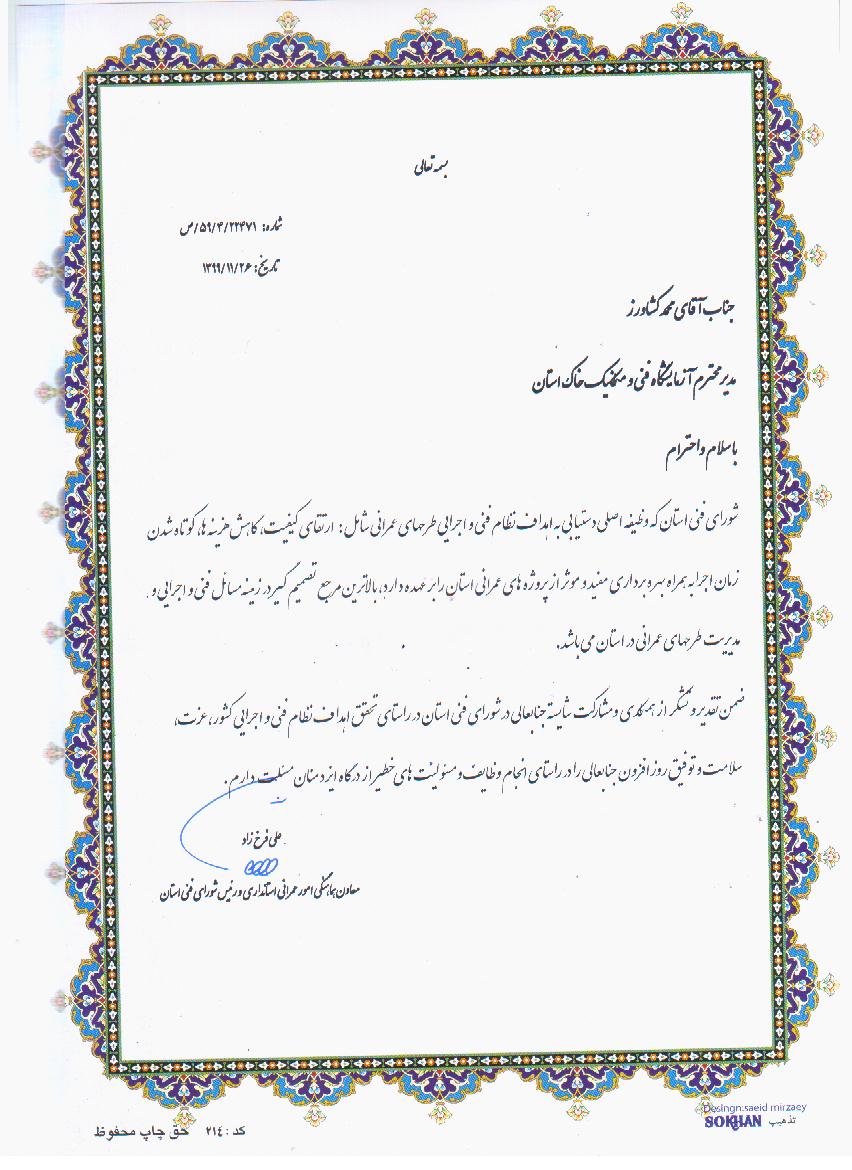 بسمه تعالی
شماره: ۵۹/۴/۲۲۴۷۱/ص
تاریخ: ۱۳۹۹/۱۱/۲۶
جناب آقای محمد کشاورز
مدیر محترم آزمایشگاه فنی و مکانیک خاک استان
با سلام و احترام
شورای فنی استان که وظیفه اصلی دستیابی به اهداف نظام فنی و اجرایی طرحهای عمرانی شامل: ارتقای کیفیت، کاهش هزینه ها، کوتاه شدن
زمان اجرا به همراه بهره برداری مفید و موثر از پروژه های عمرانی استان را بر عهده دارد، بالاترین مرجع تصمیم گیر در زمینه مسائل فنی و اجرایی و
مدیریت طرحهای عمرانی در استان می باشد.
ضمن تقدیر و تشکر از همکاری و مشارکت شایسته جنابعالی در شورای فنی استان در راستای تحقق اهداف نظام فنی و اجرایی کشور، عزت،
سلامت و توفیق روز افزون جنابعالی را در راستای انجام وظایف و مسئولیت های خطیر از درگاه ایزد منان مسئلت دارم.
علی فرخ زاد
معاون هماهنگی امور عمرانی استانداری و رئیس شورای فنی استان
کد: ۲۱۴ حق چاپ محفوظ
Desingn:saeid mirzaey
SOKHAN تذهیب